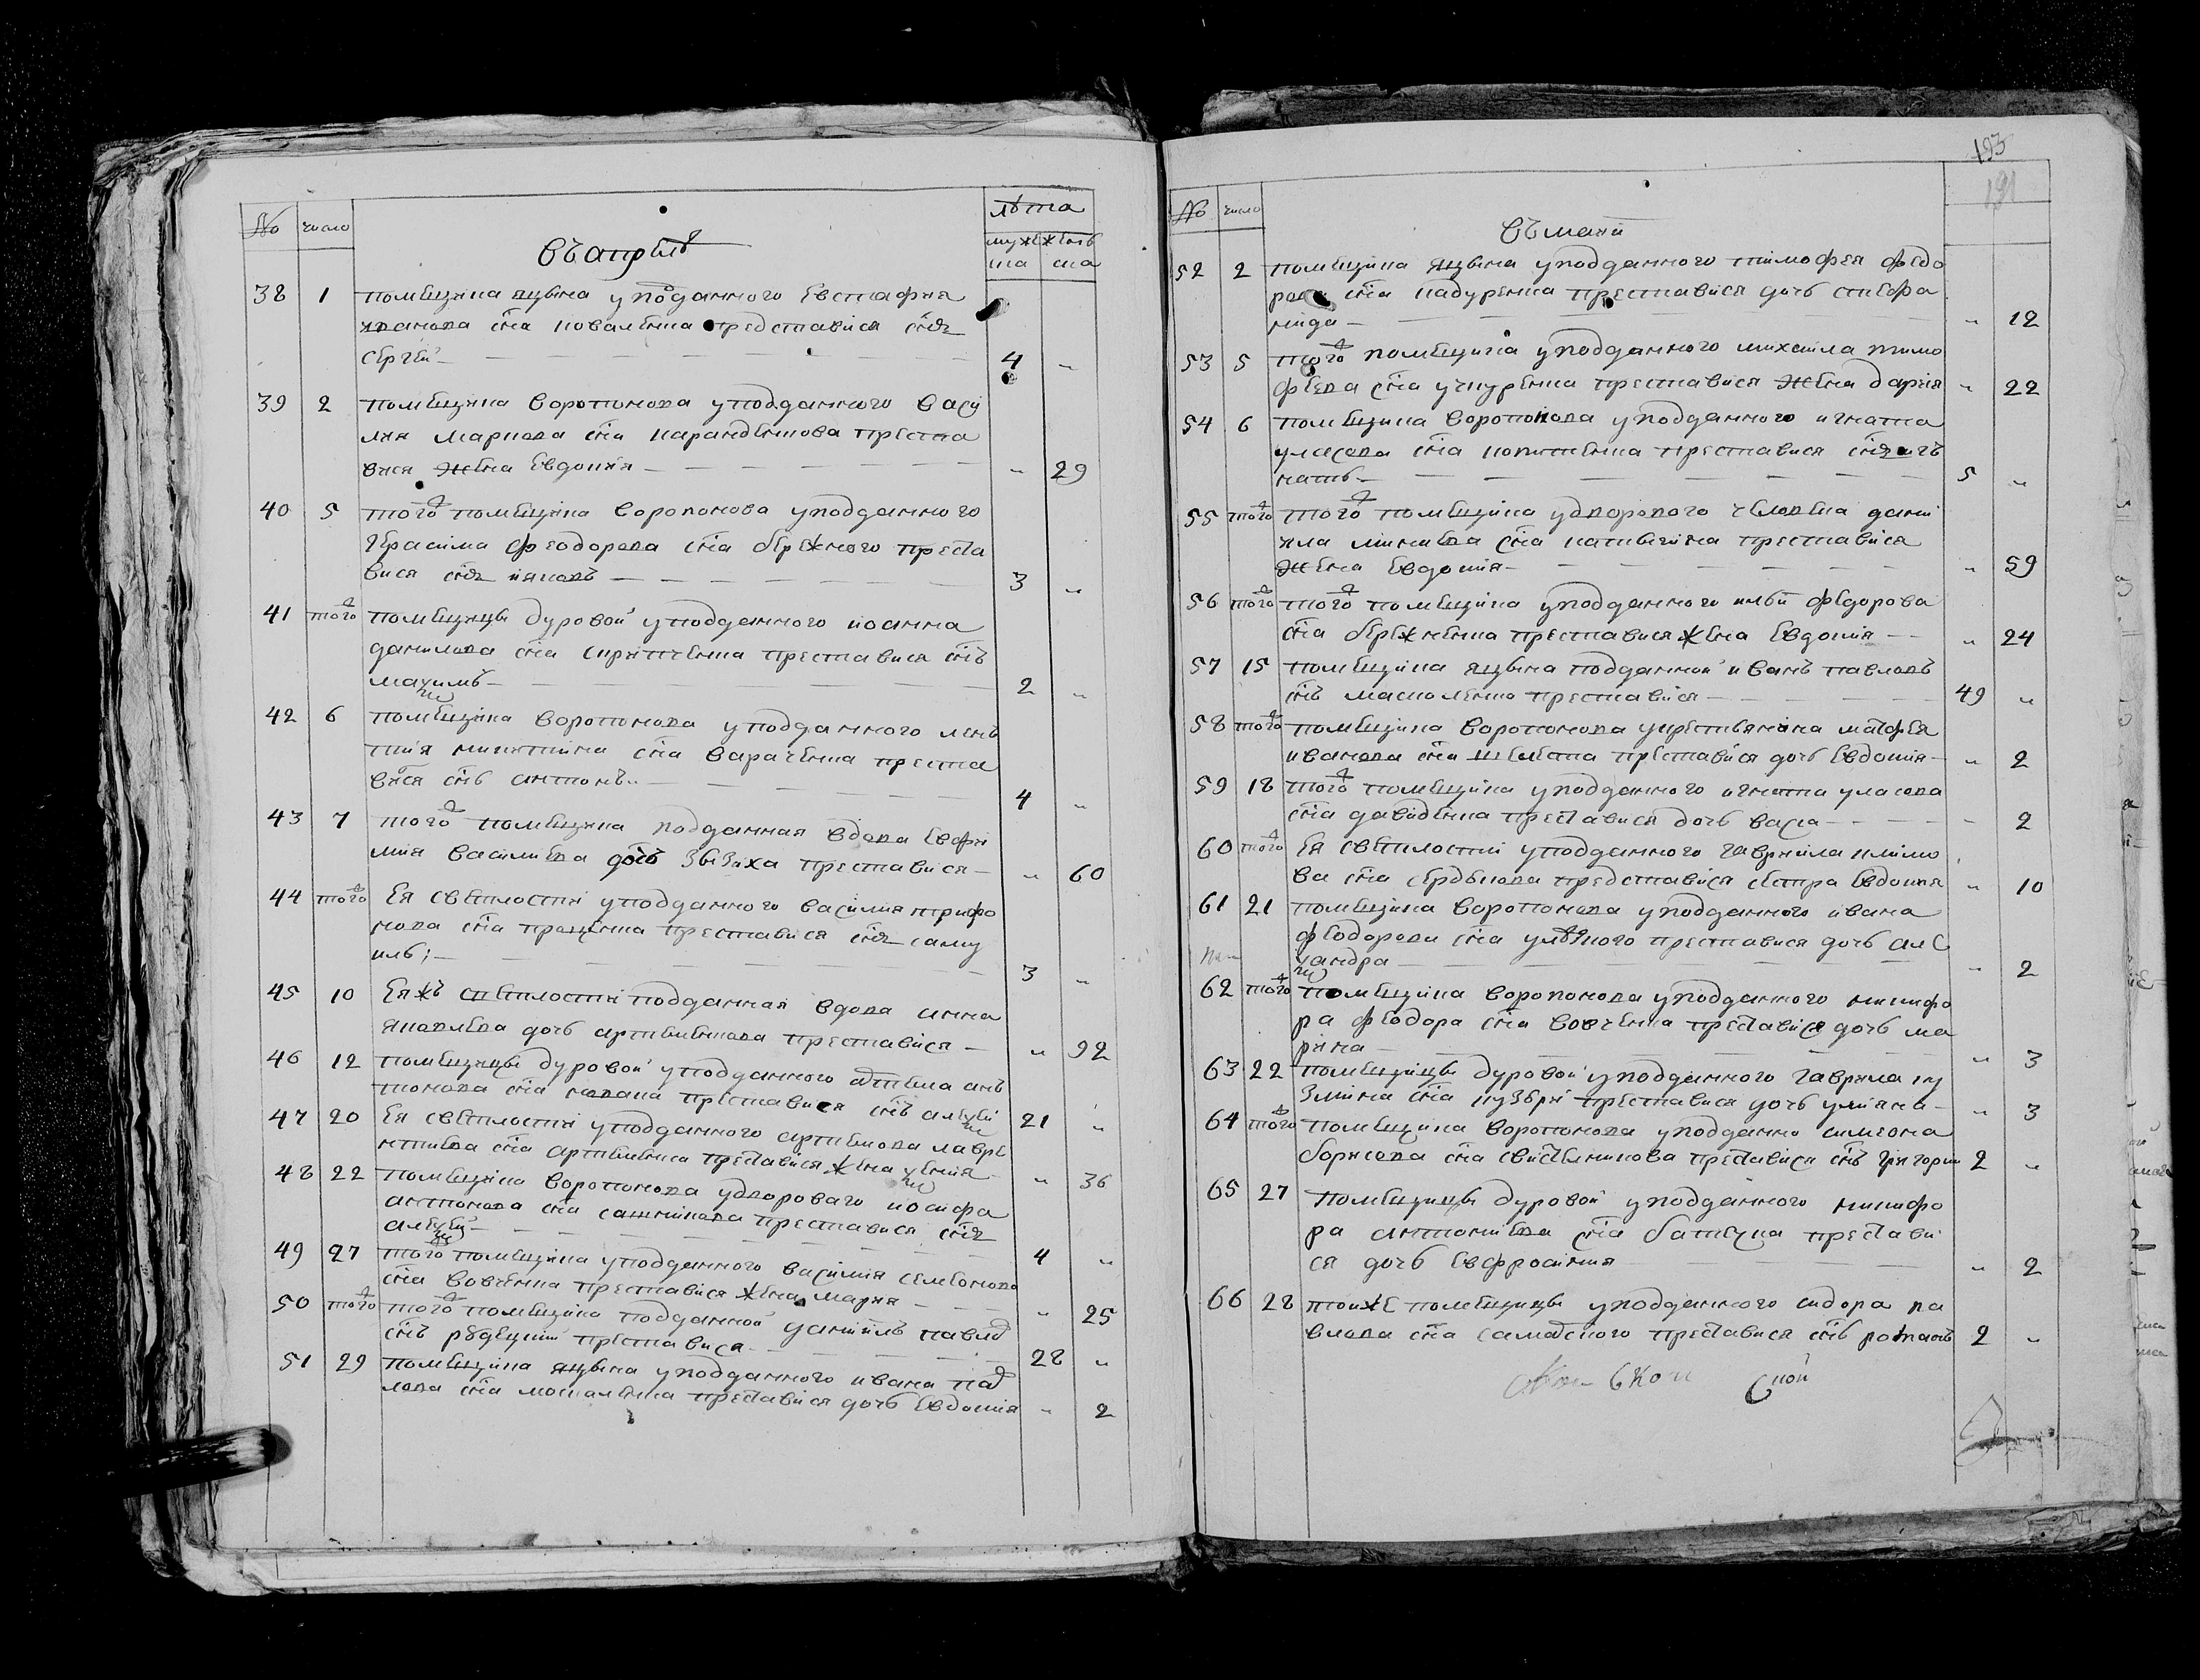 № число въ апрѣлѣ лѣта
мужеска женска
38 1 помѣщика яцына уподданного Евстафия
иванова сна коваленка представися снъ
сергей 4 „
39 2 помѣщика воропонова уподданного васи
лия маркова сна карандѣикова преста
вися жена Евдокия „ 29
40 5 того помѣщика воропонова уподданного
герасима феодорова сна бережного преста
вися снъ яковъ 3 „
41 того помѣщицы дуровой уподданного иоанна
данилова сна скрипченка преставися снъ
махимъ 2 „
42 6 помѣщика воропонова уподданного леон
тия микитина сна вараченка преста
вися снъ антонъ 4 „
43 7 того помѣщика подданная вдова Евфи
мия василиева дочь зызиха преставися „ 60
44 того Ея свѣтлости уподданного василия трифо
нова сна преставися снъ саму
илъ 3 „
45 10 Еяжъ свѣтлости подданная вдова анна
яковлева дочь артеменкова преставися „ 92
46 12 помѣщицы дуровой уподданного артема ан
тонова сна преставися снъ алехей 21 „
47 20 Ея свѣтлости уподданного артемова лавре
нтиева сна артеменка преставися жена 36
48 22 помѣщика воропонова удворового иосифа
антонова сна преставися снъ
алехей 4 „
49 27 того помѣщика уподданного василия семеонова
сна вовченка преставися жена мария „ 25
50 того того помѣщика подданной даниилъ павлов
снъ рудецкий преставися 28 „
51 29 помѣщика яцына уподданного ивана пав
лова сна москаленка преставися дочь Евдокия „ 2
193
191
№ число въ маии
52 2 помѣщика яцына уподданного тимофея федо
рова сна кадуренка преставися дочь стефа
нида „ 12
53 5 того помѣщика уподданного михаила тимо
феева сна учкуренка преставися жена дария „ 22
54 6 помѣщика воропонова уподданного игната
уласова сна преставися снъ иг
натъ 5 „
55 того того помѣщика удворового человека дани
ила минаева сна преставися
жена Евдокия „ 59
56 того того помѣщика уподданного илии федорова
сна бережненка преставися жена Евдокия „ 24
57 15 помѣщика яцына подданной иванъ павловъ
снъ масколенко преставися 49 „
58 того помѣщика воропонова укрестьянина матфея
иванова сна шелеста преставися дочь Евдокия „ 2
59 18 того помѣщика уподданного игната уласова
сна давиденка преставися дочь васса 2
60 того Ея свѣтлости уподданного гавриила климо
ва сна сердюкова представися сестра Евдокия „ 10
61 21 помѣщика воропонова уподданного ивана
феодорова сна преставися дочь алек
хандра „ 2
62 того помѣщика воропонова уподданного никифо
ра феодора сна вовченка преставися дочь ма
рина „ 3
63 22 помѣщицы дуровой уподданного гаврила ку
змина сна пузыря преставися дочь улияна „ 3
64 того помѣщика воропонова уподданно симеона
борисова сна преставися снъ григории 2 „
65 27 помѣщицы дуровой уподданного никифо
ра антониева сна батецка престави
ся дочь Евфросиния „ 2
66 28 тоижЕ помѣщицы уподданного сидора па
влова сна самарского преставися снъ романъ 2 „